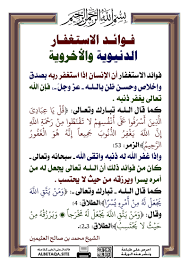 بسم الله الرحمن الرحيم
فوائد الاستغفار
الدنيوية والأخروية
فوائد الاستغفار أن الإنسان إذا استغفر ربه بصدق
وإخلاص وحسن ظن بالله ـ عز وجل ـ، فإن الله
تعالى يغفر ذنبه.
كما قال الله ـ تبارك وتعالى ـ: ﴿قُلْ يَا عِبَادِيَ
الَّذِينَ أَسْرَفُوا عَلَى أَنْفُسِهِمْ لَا تَقْنَطُوا مِنْ رَحْمَةِ اللَّهِ
إِنَّ اللَّهَ يَغْفِرُ الذُّنُوبَ جَمِيعًا إِنَّهُ هُوَ الْغَفُورُ
الرَّحِيمُ﴾(الزمر: 53)
وإذا غفر الله له ذنبه واتقى الله ـ سبحانه وتعالى ـ
كان من فوائد ذلك أن الله تعالى يجعل له من
أمره يسرا ويرزقه من حيث لا يحتسب.
كما قال الله ـ تبارك وتعالى ـ: ﴿وَمَنْ يَتَّقِ اللَّهَ
يَجْعَلْ لَهُ مِنْ أَمْرِهِ يُسْرًا﴾(الطلاق: 4)
﴿وَمَنْ يَتَّقِ اللَّهَ يَجْعَلْ لَهُ مَخْرَجًا ۝ وَيَرْزُقْهُ مِنْ حَيْثُ
لَا يَحْتَسِبُ﴾(الطلاق: 2،3)
الشيخ محمد بن صالح العثيمين
ALBETAQA.SITE